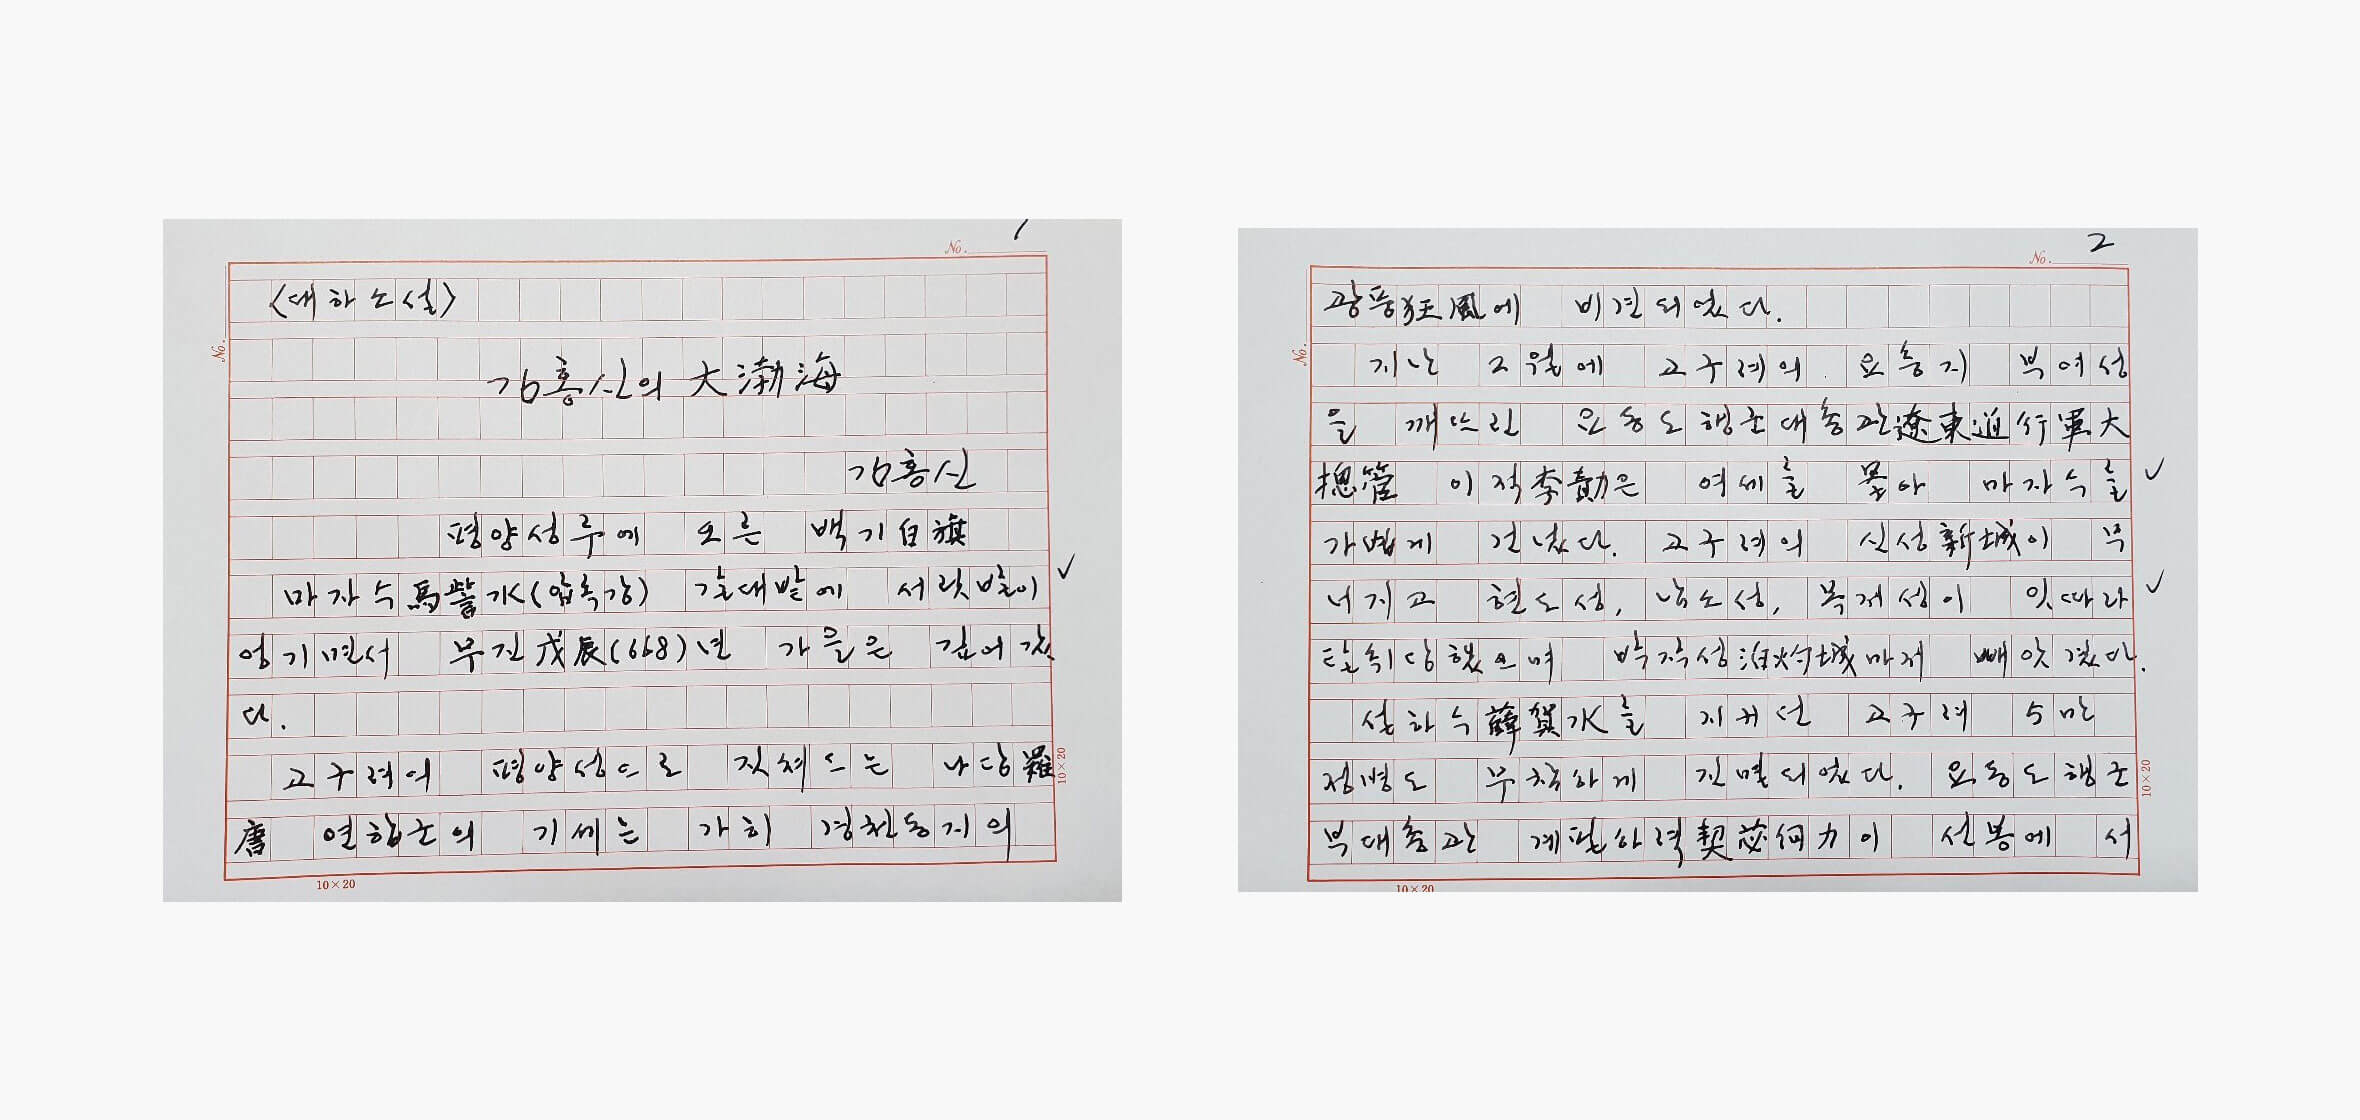 1
No.
No.
<대하소설>
김홍신의 大渤海
김홍신
평양성루에 오른 백기白旗
마자수馬訾水(압록강) 갈대밭에 서릿발이 ✓
엉기면서 무진戊辰(668)년 가을은 깊어 갔
다.
고구려의 평양성으로 짓쳐드는 나당羅
唐 연합군의 기세는 가히 경천동지의
10×20
10×20
2
No.
No.
광풍狂風에 비견되었다.
지난 2월에 고구려의 요충지 부여성
을 깨뜨린 요동도행군대총관遼東道行軍大
摠管 이적李勣은 여세를 몰아 마자수를 ✓
가볍게 건넜다. 고구려의 신성新城이 무
너지고 현도성, 남소성, 목저성이 잇따라 ✓
탈취당했으며 박작성泊灼城마저 빼앗겼다.
설하수薛賀水를 지켜선 고구려 5만
정병도 무참하게 진멸되었다. 요동도행군
부대총관 계필하력契苾何力이 선봉에 서
10×20
10×20